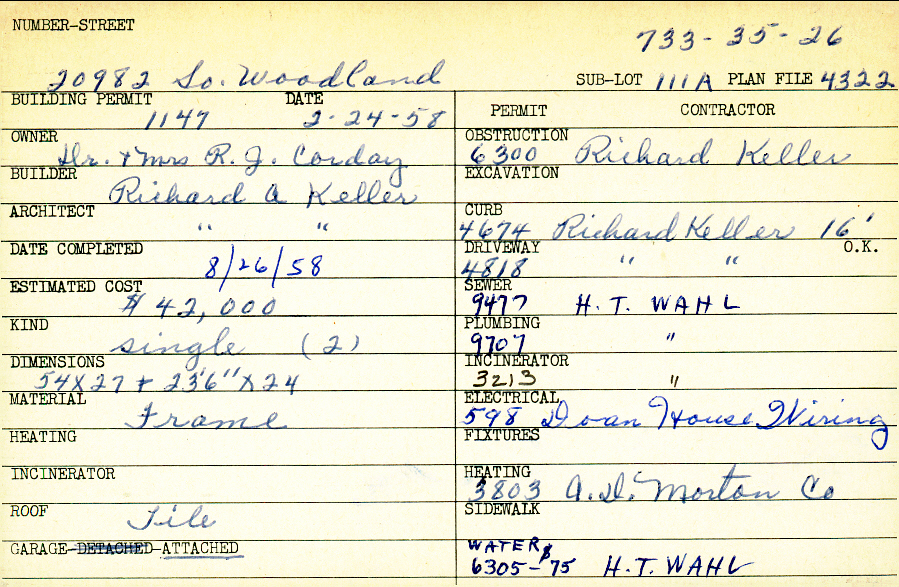 NUMBER-STREET
733-35-26
20982 So. Woodland
SUB-LOT 111A PLAN FILE 4322
BUILDING PERMIT DATE
1147 2-24-58
OWNER
Dr. + Mrs R. J. Corday
BUILDER
Richard A Keller
ARCHITECT
" "
DATE COMPLETED
8/26/58
ESTIMATED COST
$ 42,000
KIND
single (2)
DIMENSIONS
54x27 + 23'6" x 24
MATERIAL
Frame
HEATING
INCINERATOR
ROOF
Tile
GARAGE-DETACHED-ATTACHED
PERMIT CONTRACTOR
OBSTRUCTION
6300 Richard Keller
EXCAVATION
CURB
4674 Richard Keller 16'
DRIVEWAY O.K.
4818 " "
SEWER
9477 H.T. WAHL
PLUMBING
9707 "
INCINERATOR
3213 "
ELECTRICAL
598 Doan House Wiring
FIXTURES
HEATING
3803 A.D. Morton Co
SIDEWALK
WATER $
6305-75 H.T. WAHL